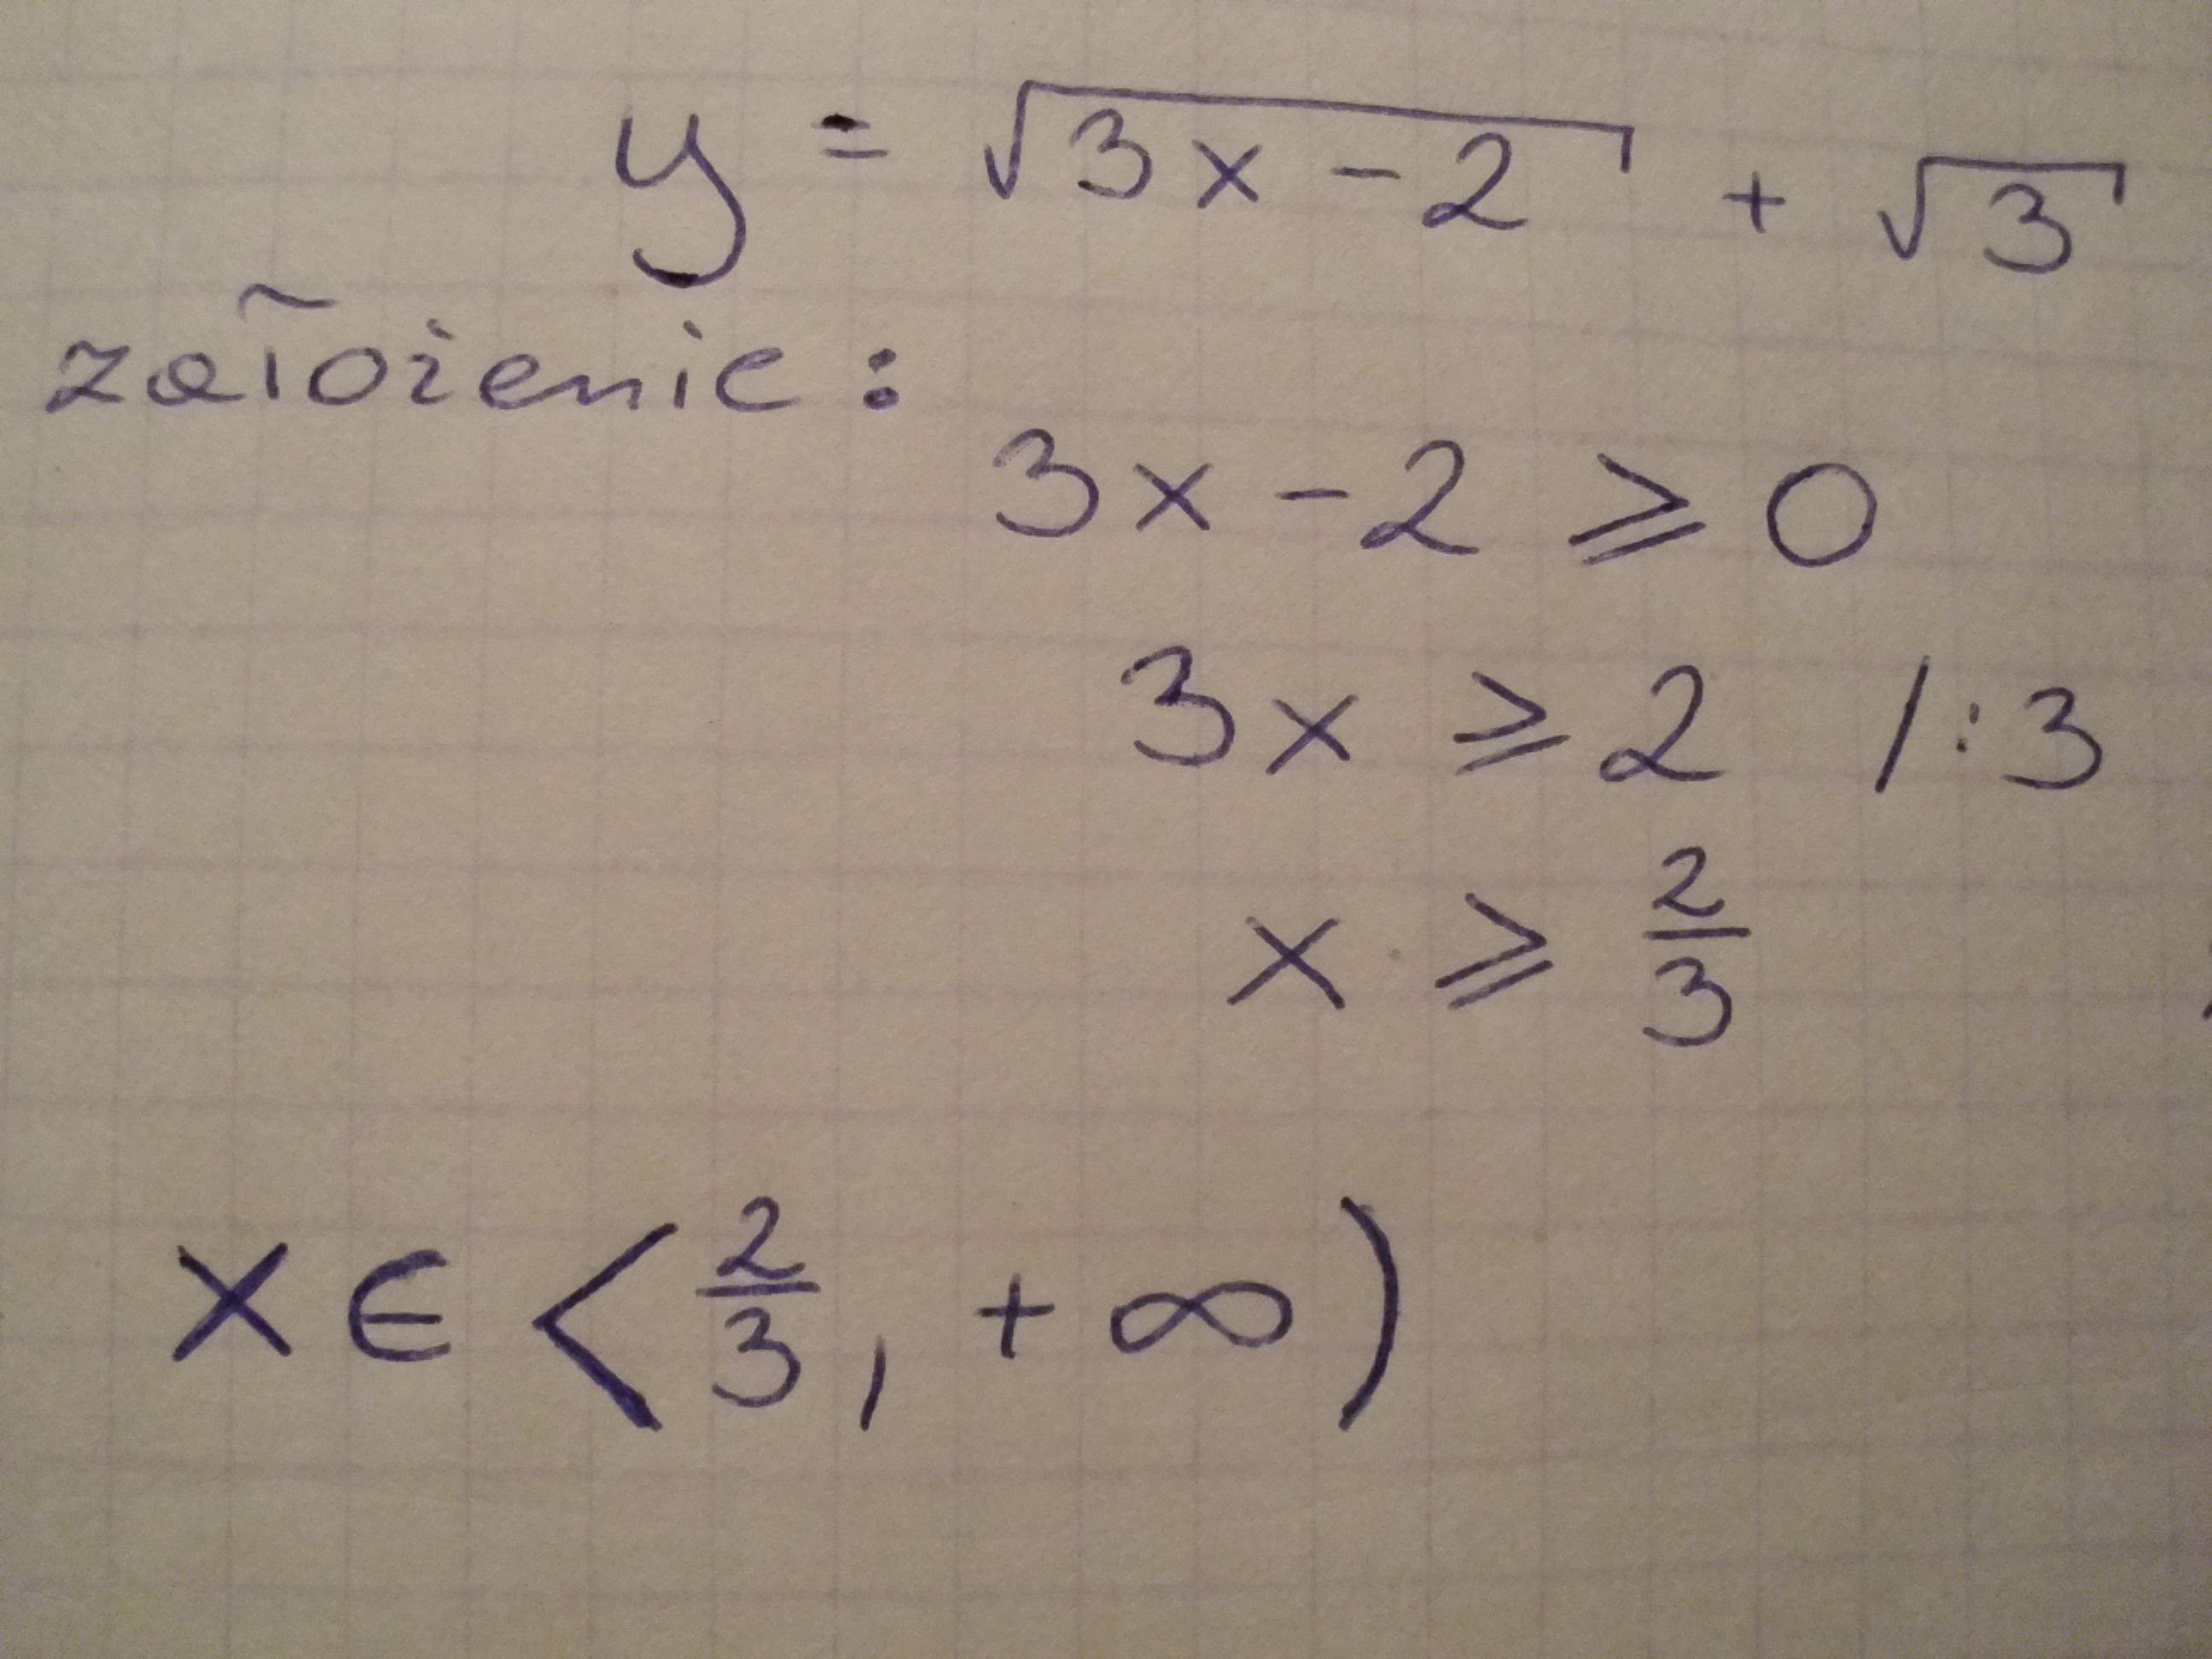 y = √3x - 2 + √3
założenie:
3x - 2 ⩾ 0
3x ⩾ 2 /:3
x ⩾ 2/3
x ∈ <2/3, +∞)